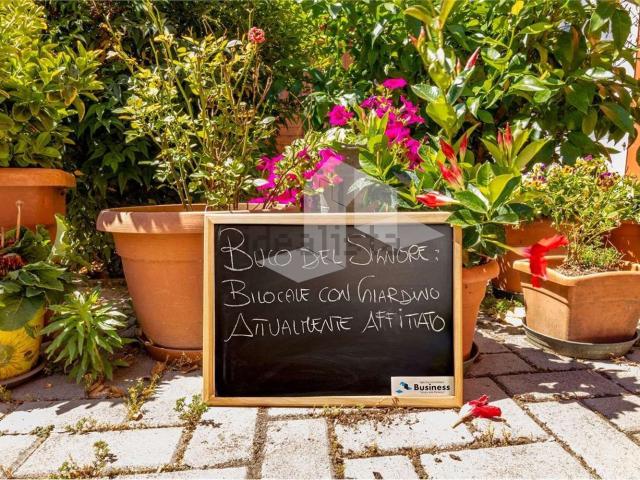 idealista
BUCO DEL SIGNORE:
BILOCALE CON GIARDINO
ATTUALMENTE AFFITTATO
Business